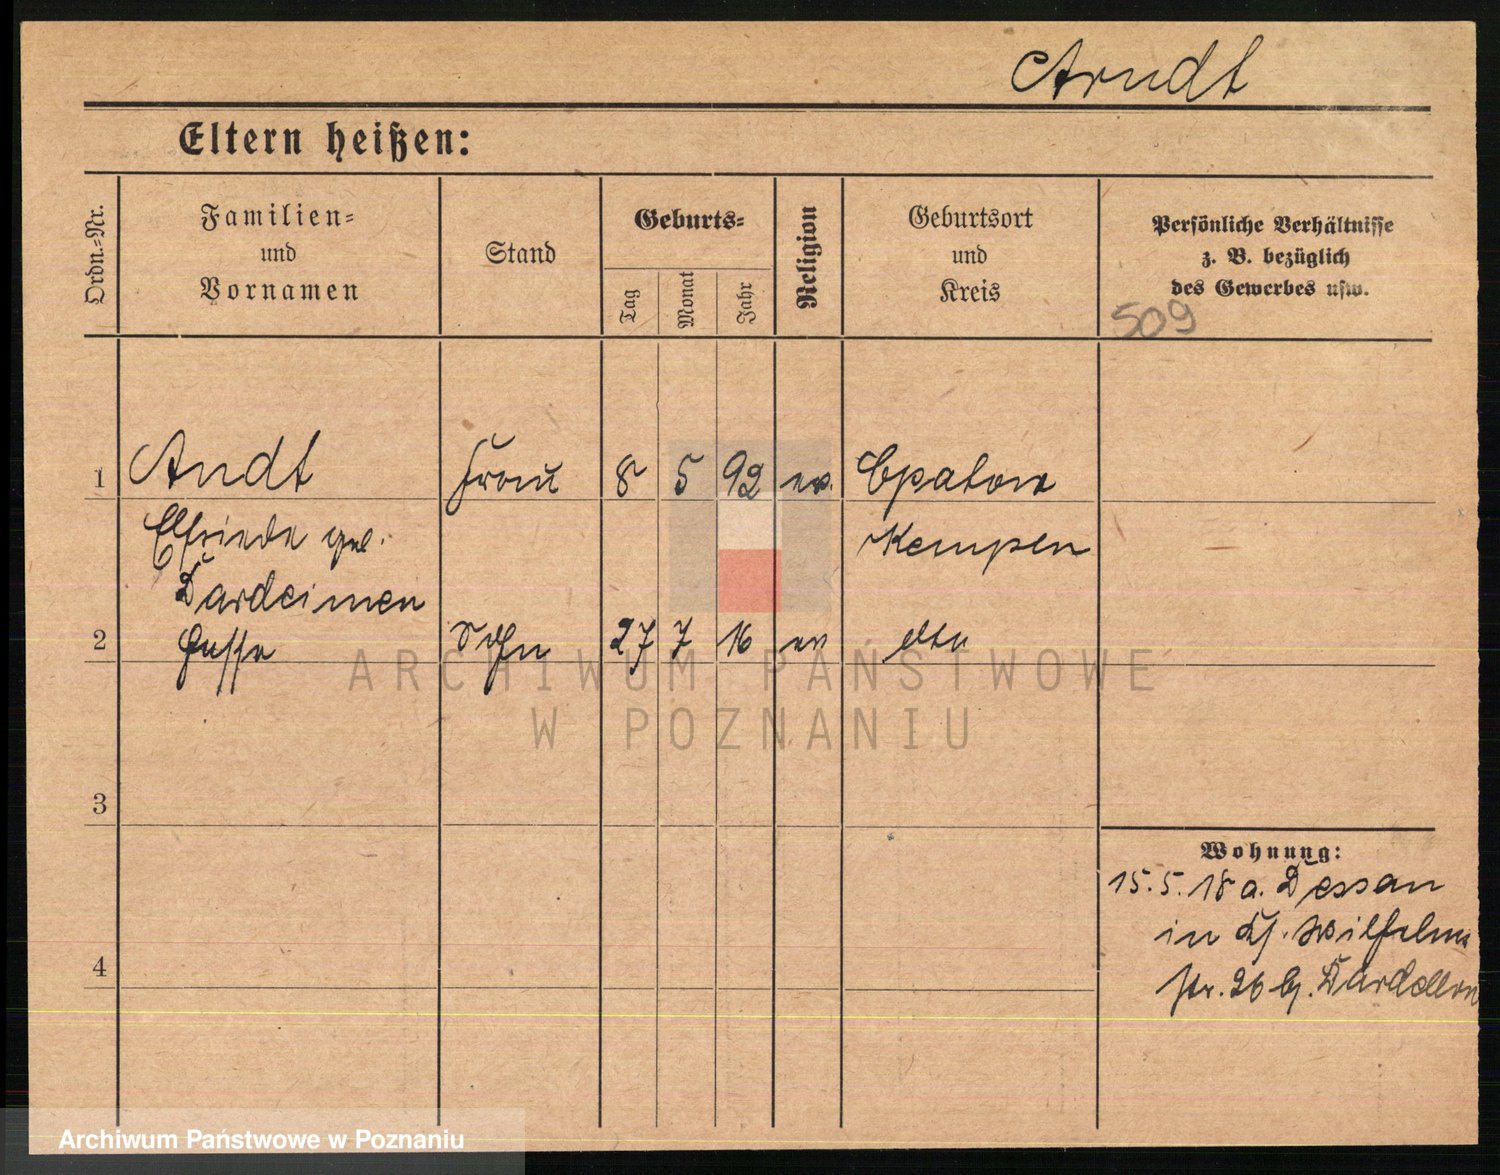 Arndt
Eltern heißen:
Ordn.=Nr.
Familien=
und
Vornamen
Stand
Geburts=
Tag
Monat
Jahr
Religion
Geburtsort
und
Kreis
Persönliche Verhältnisse
z. B. bezüglich
des Gewerbes usw.
509
1 Arndt Frau 8 5 92 ev. Opatow
Elfriede geb. Kempen
2 Sohn 27 7 16 ev dto
ARCHIWUM PAŃSTWOWE
W POZNANIU
3
Wohnung:
15.5.18 a. Dessau
in Wilhelm
4
str. 26 b.
Archiwum Państwowe w Poznaniu